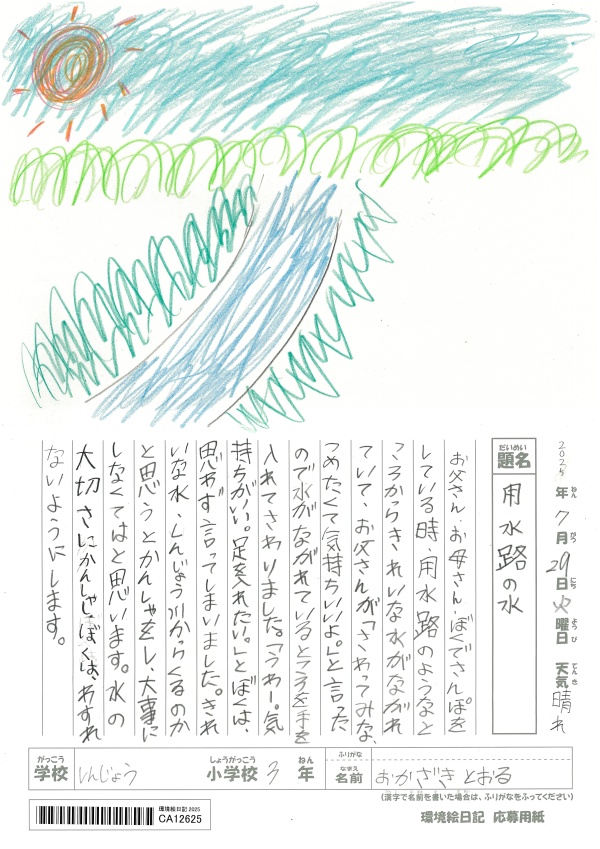 2025年7月29日火曜日 天気晴れ
ねん がつ にち ようび てんき
だいめい
題名
用水路の水
お父さん、お母さん、ぼくでさんぽを
している時、用水路のようなと
ころからきれいな水がながれ
ていて、お父さんが「さわってみな、
つめたくて気持ちいいよ。」と言った
ので水がながれているところを手を
入れてさわりました。「うわー。気
持ちがいい。足を入れたい。」とぼくは、
思わず言ってしまいました。きれ
いな水、しんじょう川からくるのか
と思うとかんしゃをし、大事に
しなくてはと思います。水の
大切さにかんしゃしぼくは、わすれ
ないようにします。
がっこう しょうがっこう ねん
学校 しんじょう 小学校 3年
ふりがな
なまえ
名前 おかざき とおる
(漢字で名前を書いた場合は、ふりがなをふってください)
環境絵日記 2025
CA12625
環境絵日記 応募用紙